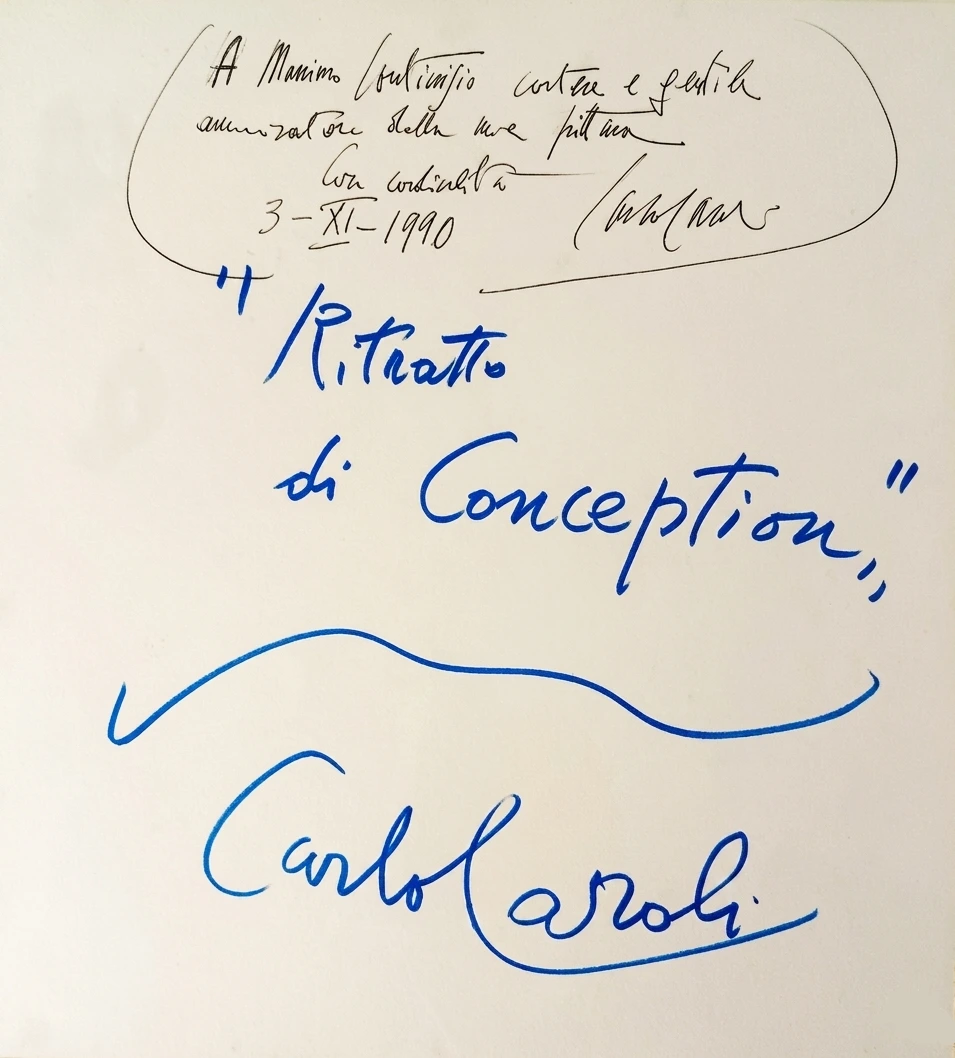 A Massimo cortese e gentile
ammiratore della mia pittura
Con cordialità
3-XI-1990 Carlo Caroli
"Ritratto
di Conception"
Carlo Caroli